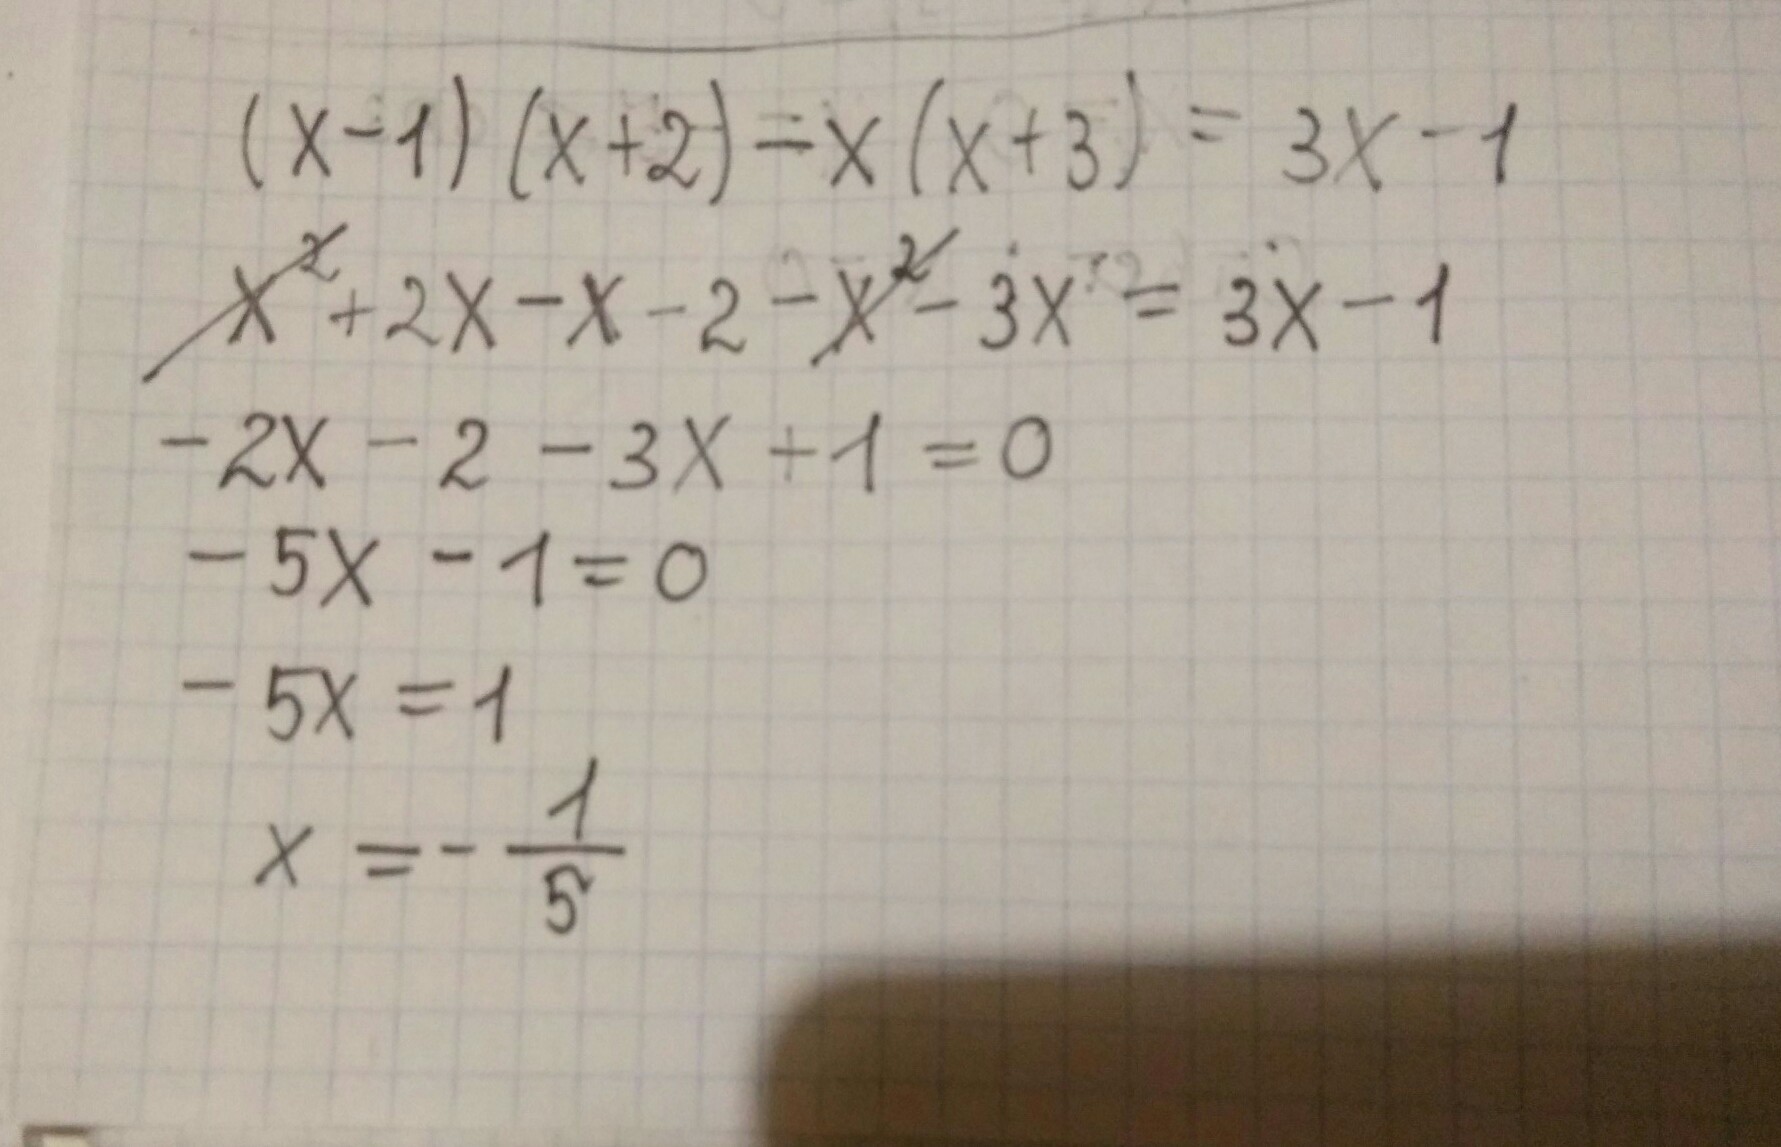 (x-1)(x+2)=x(x+3)=3x-1
x²+2x-x-2-x²-3x=3x-1
-2x-2-3x+1=0
-5x-1=0
-5x=1
x=-1/5